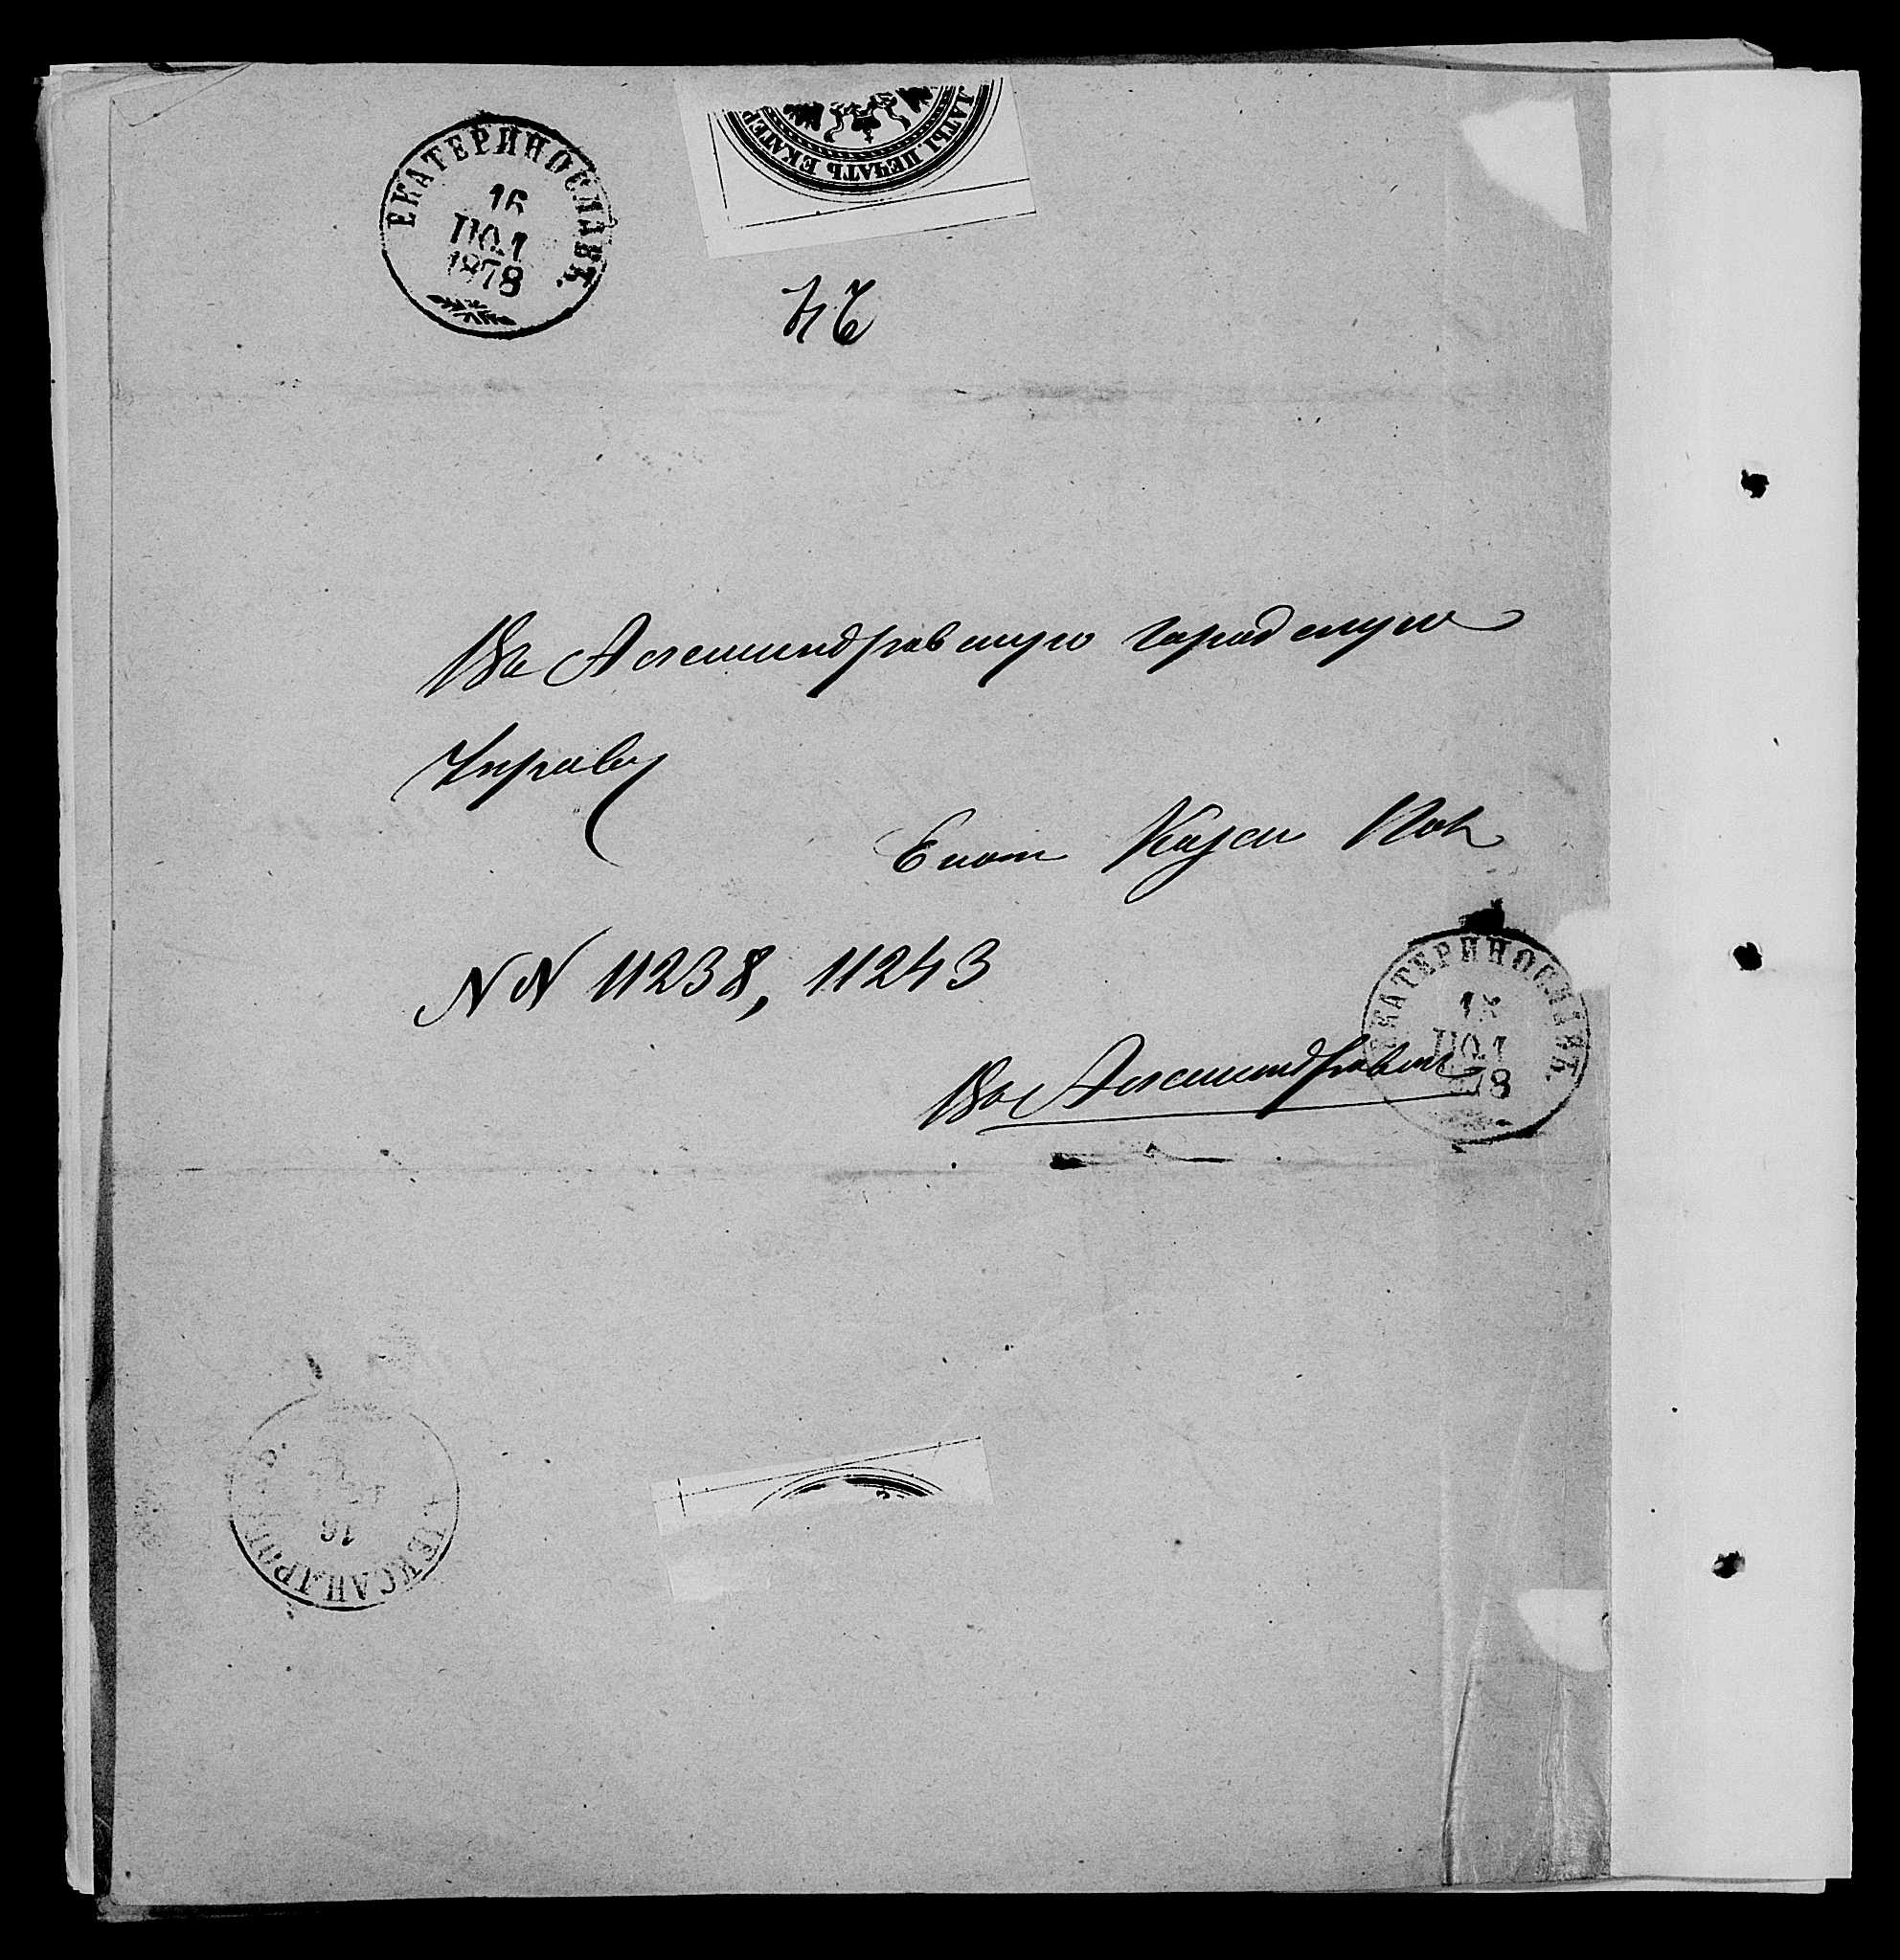 ЕКАТЕРИНОСЛАВЪ.
16
ІЮЛ
1878
ЛАТЫ. ПЕЧАТЬ ЕКАТЕР
Въ Александровскую городскую
Управу
Екат Казен Пал
NN 11238, 11243
Въ Александровск
ЕКАТЕРИНОСЛАВЪ.
ІЮЛ
78
АЛЕКСАНДРОВСКЪ.
16